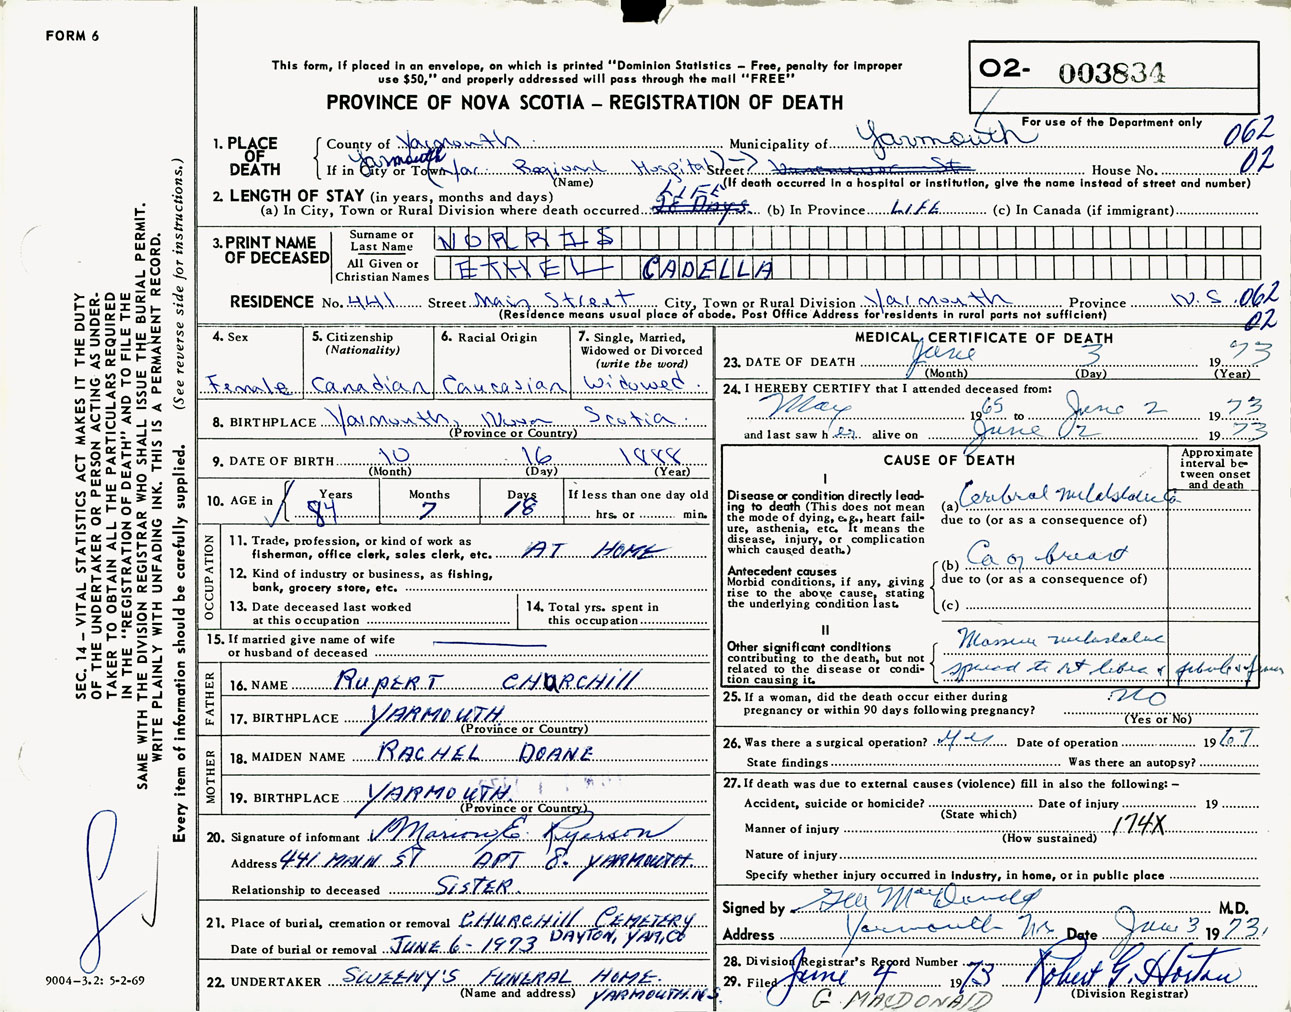 FORM 6
This form, if placed in an envelope, on which is printed "Dominion Statistics – Free, penalty for improper
use $50," and properly addressed will pass through the mail "FREE"
PROVINCE OF NOVA SCOTIA – REGISTRATION OF DEATH
O2- 003834
For use of the Department only
062
02
1. PLACE OF DEATH
County of Yarmouth Municipality of Yarmouth
Yarmouth
If in City or Town Regional Hospital Street House No.
(Name) (If death occurred in a hospital or institution, give the name instead of street and number)
2. LENGTH OF STAY (in years, months and days)
LIFE
(a) In City, Town or Rural Division where death occurred 28 Days (b) In Province LIFE (c) In Canada (if immigrant)
3. PRINT NAME OF DECEASED
Surname or Last Name NORRIS
All Given or Christian Names ETHEL CADELLA
RESIDENCE No. 441 Street Main Street City, Town or Rural Division Yarmouth Province N.S. 062
(Residence means usual place of abode. Post Office Address for residents in rural parts not sufficient)
02
4. Sex
Female
5. Citizenship
(Nationality)
Canadian
6. Racial Origin
Caucasian
7. Single, Married,
Widowed or Divorced
(write the word)
Widowed
8. BIRTHPLACE Yarmouth, Nova Scotia
(Province or Country)
9. DATE OF BIRTH 10 16 1888
(Month) (Day) (Year)
10. AGE in Years 84 Months 7 Days 18 If less than one day old
hrs. or min.
OCCUPATION
11. Trade, profession, or kind of work as
fisherman, office clerk, sales clerk, etc. AT HOME
12. Kind of industry or business, as fishing,
bank, grocery store, etc.
13. Date deceased last worked
at this occupation
14. Total yrs. spent in
this occupation
15. If married give name of wife
or husband of deceased
FATHER
16. NAME RUPERT CHURCHILL
17. BIRTHPLACE YARMOUTH
(Province or Country)
MOTHER
18. MAIDEN NAME RACHEL DOANE
19. BIRTHPLACE YARMOUTH.
(Province or Country)
20. Signature of informant Marion E. Ryerson
Address 441 MAIN ST APT 8. YARMOUTH.
Relationship to deceased SISTER.
21. Place of burial, cremation or removal CHURCHILL CEMETERY
DAYTON, YAR, CO
Date of burial or removal JUNE 6 - 1973
22. UNDERTAKER SWEENY'S FUNERAL HOME.
(Name and address) YARMOUTH. N.S.
MEDICAL CERTIFICATE OF DEATH
23. DATE OF DEATH June 3 1973
(Month) (Day) (Year)
24. I HEREBY CERTIFY that I attended deceased from:
May 1965 to June 2 1973
and last saw her alive on June 2 1973
CAUSE OF DEATH
Approximate
interval be-
tween onset
and death
I
Disease or condition directly lead-
ing to death (This does not
mean the mode of dying, e.g., heart fail-
ure, asthenia, etc. It means the
disease, injury, or complication
which caused death.)
(a) Cerebral
due to (or as a consequence of)
Antecedent causes
Morbid conditions, if any, giving
rise to the above cause, stating
the underlying condition last.
(b) Ca of breast
due to (or as a consequence of)
(c)
II
Other significant conditions
contributing to the death, but not
related to the disease or condi-
tion causing it.
Massive
spread to rt &
25. If a woman, did the death occur either during
pregnancy or within 90 days following pregnancy? No
(Yes or No)
26. Was there a surgical operation? Yes Date of operation 1967
State findings Was there an autopsy?
27. If death was due to external causes (violence) fill in also the following: –
Accident, suicide or homicide? Date of injury 19
(State which)
Manner of injury 174X
(How sustained)
Nature of injury
Specify whether injury occurred in industry, in home, or in public place
Signed by MacDonald M.D.
Address Yarmouth NS Date June 3 1973.
28. Division Registrar's Record Number
29. Filed June 4 1973 Robert G. Horton
(Division Registrar)
G MACDONALD
SEC. 14 – VITAL STATISTICS ACT MAKES IT THE DUTY
OF THE UNDERTAKER OR PERSON ACTING AS UNDER-
TAKER TO OBTAIN ALL THE PARTICULARS REQUIRED
IN THE "REGISTRATION OF DEATH" AND TO FILE THE
SAME WITH THE DIVISION REGISTRAR WHO SHALL ISSUE THE BURIAL PERMIT.
WRITE PLAINLY WITH UNFADING INK. THIS IS A PERMANENT RECORD.
Every item of information should be carefully supplied. (See reverse side for instructions.)
9004-3.2: 5-2-69